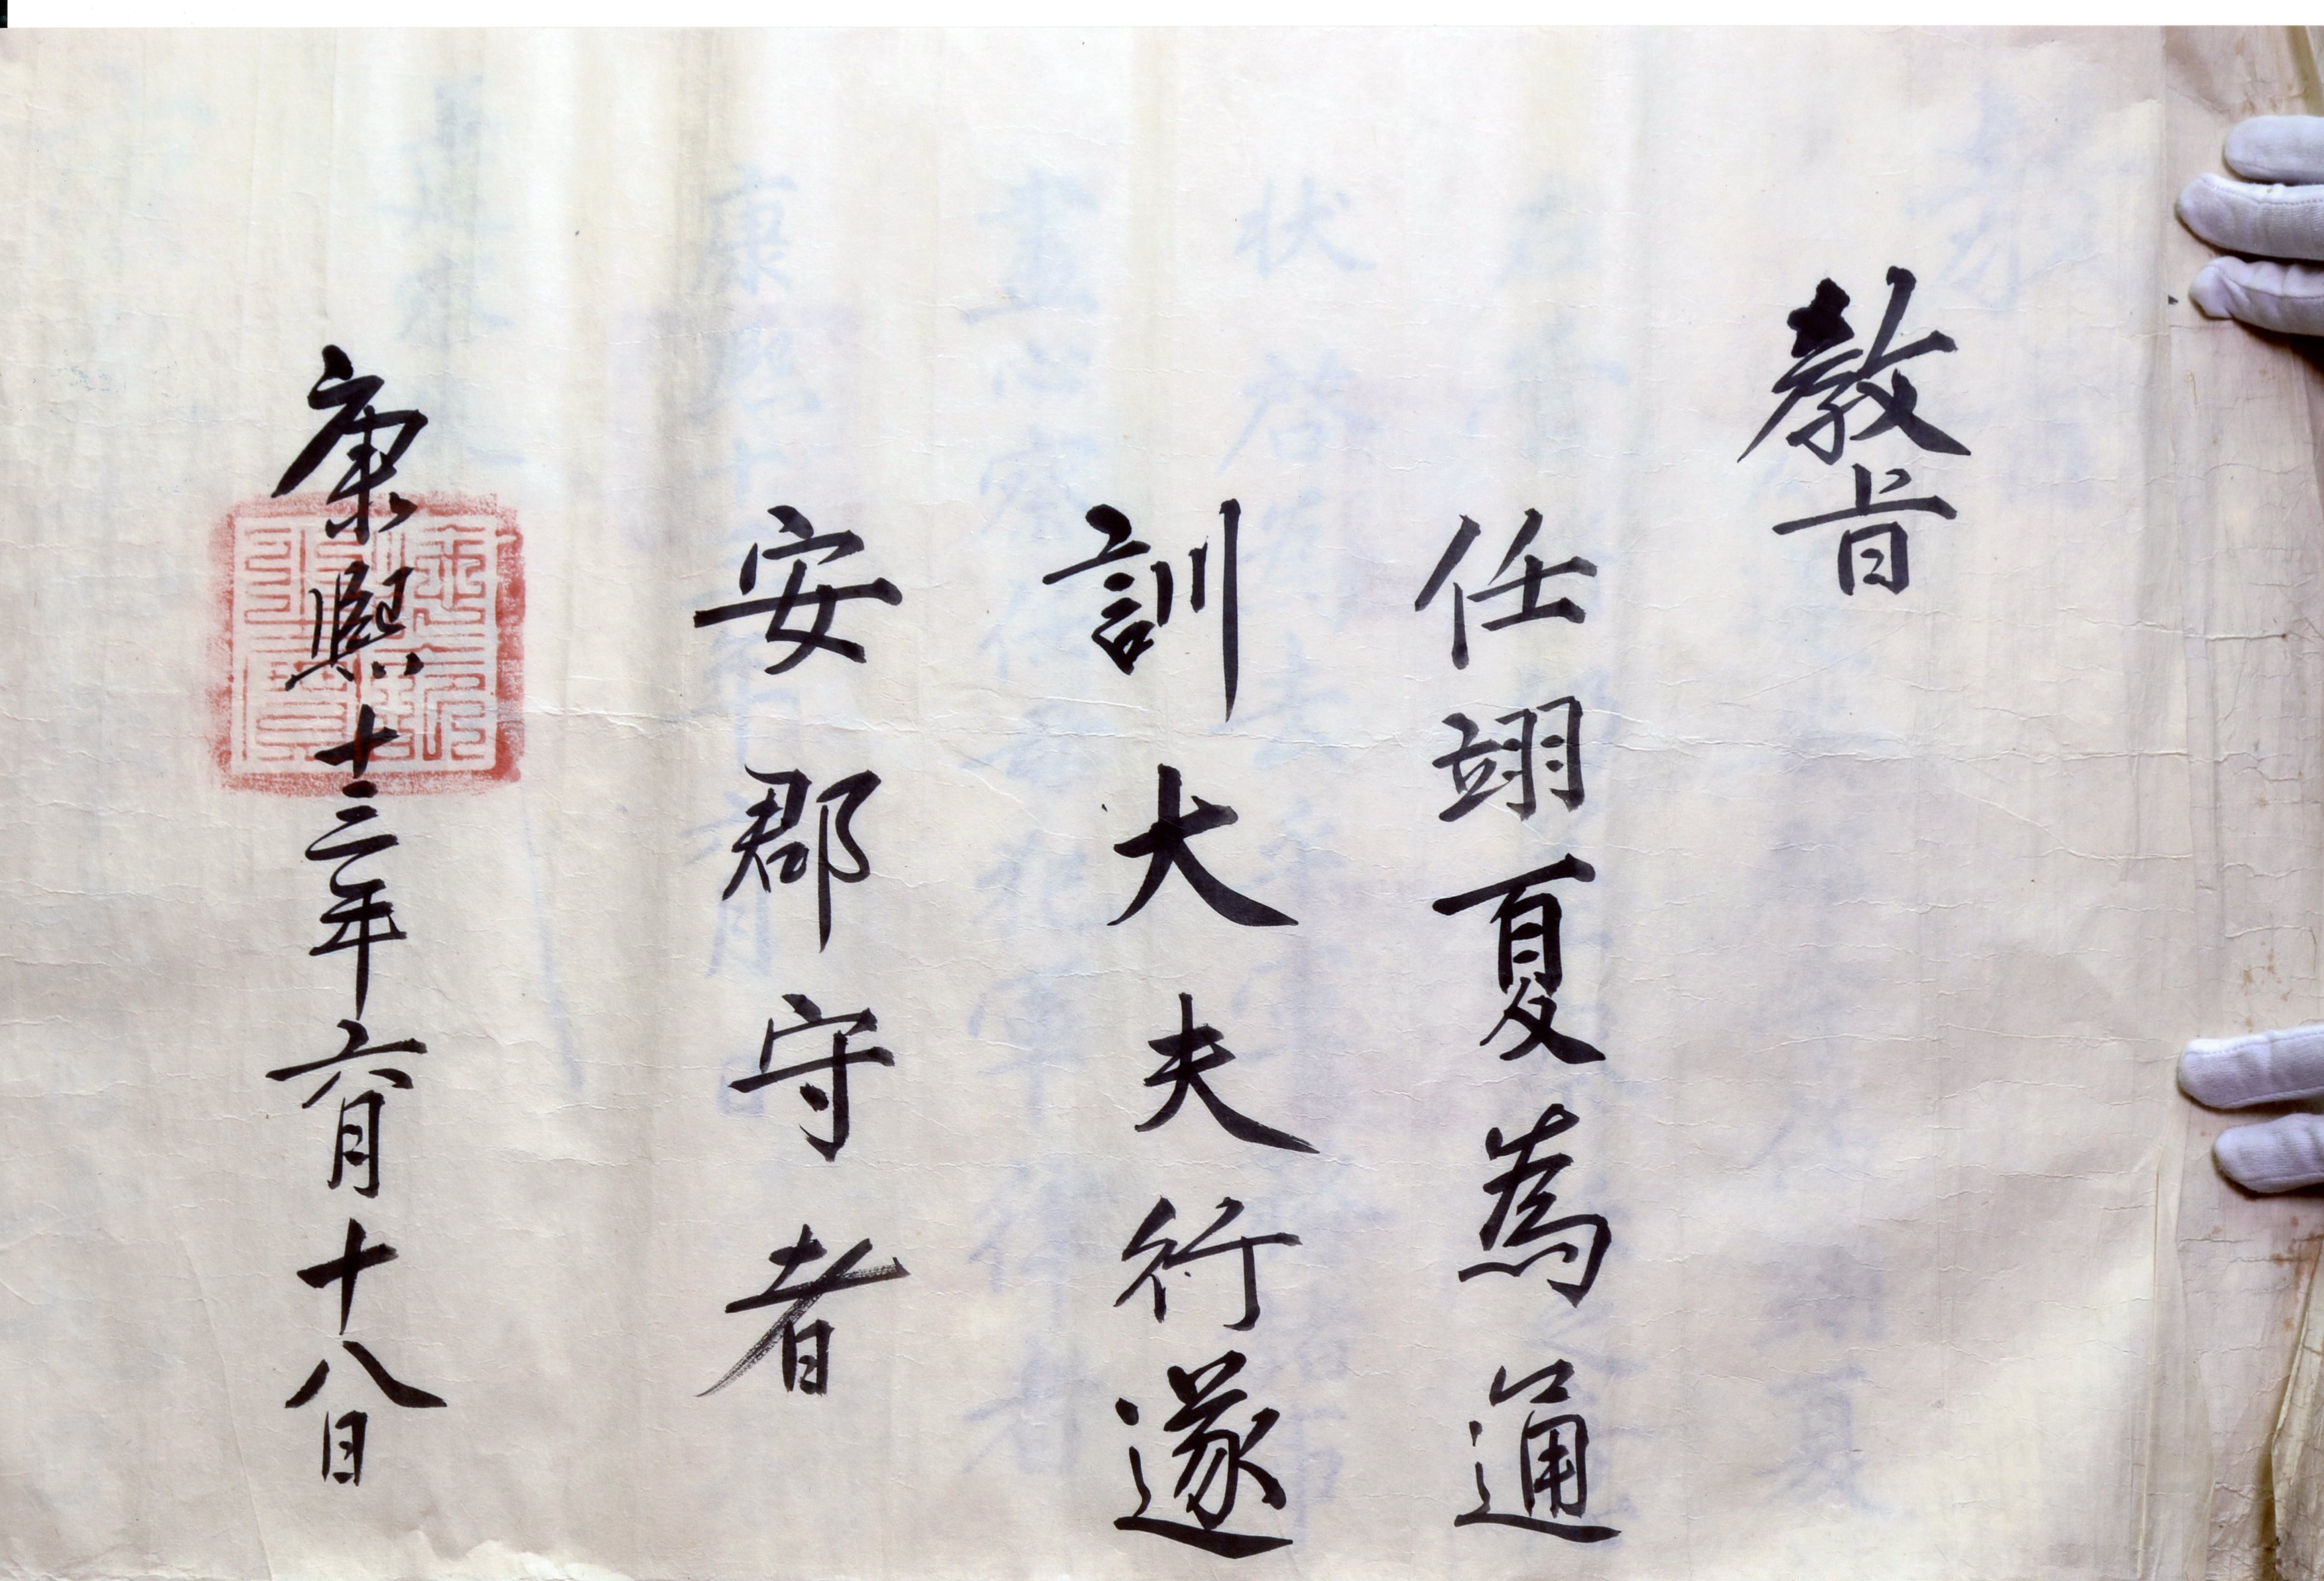 教旨
任翊夏為通
訓大夫行遂
安郡守者
康熙十三年六月十八日